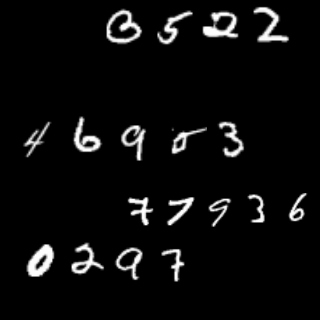 0522
46953
77936
0297